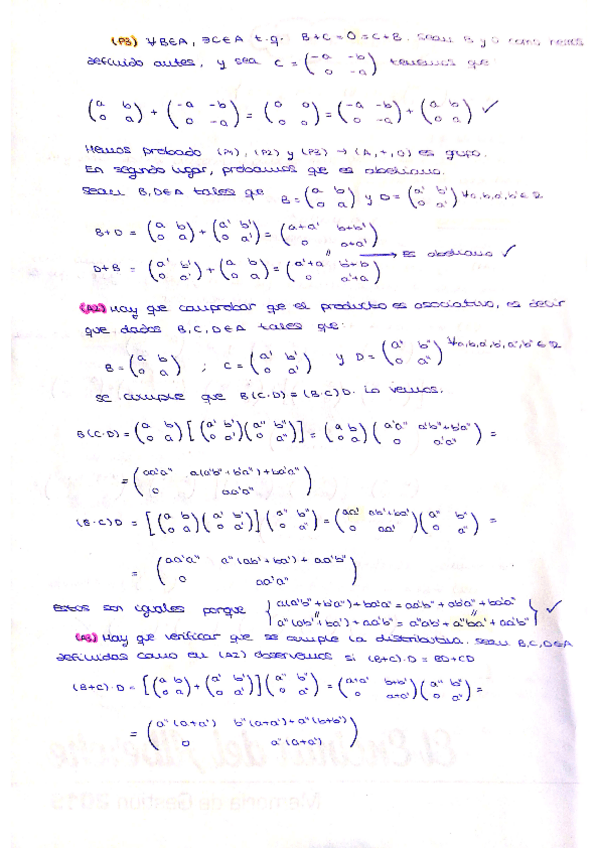 (P3) ∀B∈A, ∃C∈A t.q. B+C=0=C+B. Sean B y 0 como
definido antes, y sea C = (-a -b; 0 -a) tenemos que
(a b; 0 a) + (-a -b; 0 -a) = (0 0; 0 0) = (-a -b; 0 -a) + (a b; 0 a) ✓
Hemos probado (P1), (P2) y (P3) → (A,+,0) es grupo.
En segundo lugar, probamos que es abeliano.
Sean B,D∈A tales que B = (a b; 0 a) y D = (a' b'; 0 a') ∀a,b,a',b'∈
B+D = (a b; 0 a) + (a' b'; 0 a') = (a+a' b+b'; 0 a+a')
" → Es abeliano ✓
D+B = (a' b'; 0 a') + (a b; 0 a) = (a'+a b'+b; 0 a'+a)
(A2) Hay que comprobar que el producto es asociativo, es decir
que dados B,C,D∈A tales que:
B = (a b; 0 a) ; C = (a' b'; 0 a') y D = (a'' b''; 0 a'') ∀a,b,a',b',a'',b''∈
se cumple que B(C·D) = (B·C)D. Lo vemos.
B(C·D) = (a b; 0 a) [(a' b'; 0 a')(a'' b''; 0 a'')] = (a b; 0 a) (a'a'' a'b''+b'a''; 0 a'a'') =
= (aa'a'' a(a'b''+b'a'')+ba'a''; 0 aa'a'')
(B·C)D = [(a b; 0 a)(a' b'; 0 a')] (a'' b''; 0 a'') = (aa' ab'+ba'; 0 aa') (a'' b''; 0 a'') =
= (aa'a'' a''(ab'+ba')+aa'b''; 0 aa'a'')
Estos son iguales porque { a(a'b''+b'a'')+ba'a'' = aa'b''+ab'a''+ba'a''
a''(ab'+ba')+aa'b'' = a''ab'+a''ba'+aa'b'' } ✓
(A3) Hay que verificar que se cumple la distributiva. Sean B,C,D∈A
definidas como en (A2) observemos si (B+C)·D = BD+CD
(B+C)·D = [(a b; 0 a)+(a' b'; 0 a')] (a'' b''; 0 a'') = (a+a' b+b'; 0 a+a') (a'' b''; 0 a'') =
= (a''(a+a') b''(a+a')+a''(b+b'); 0 a''(a+a'))
Memoria de Gestión